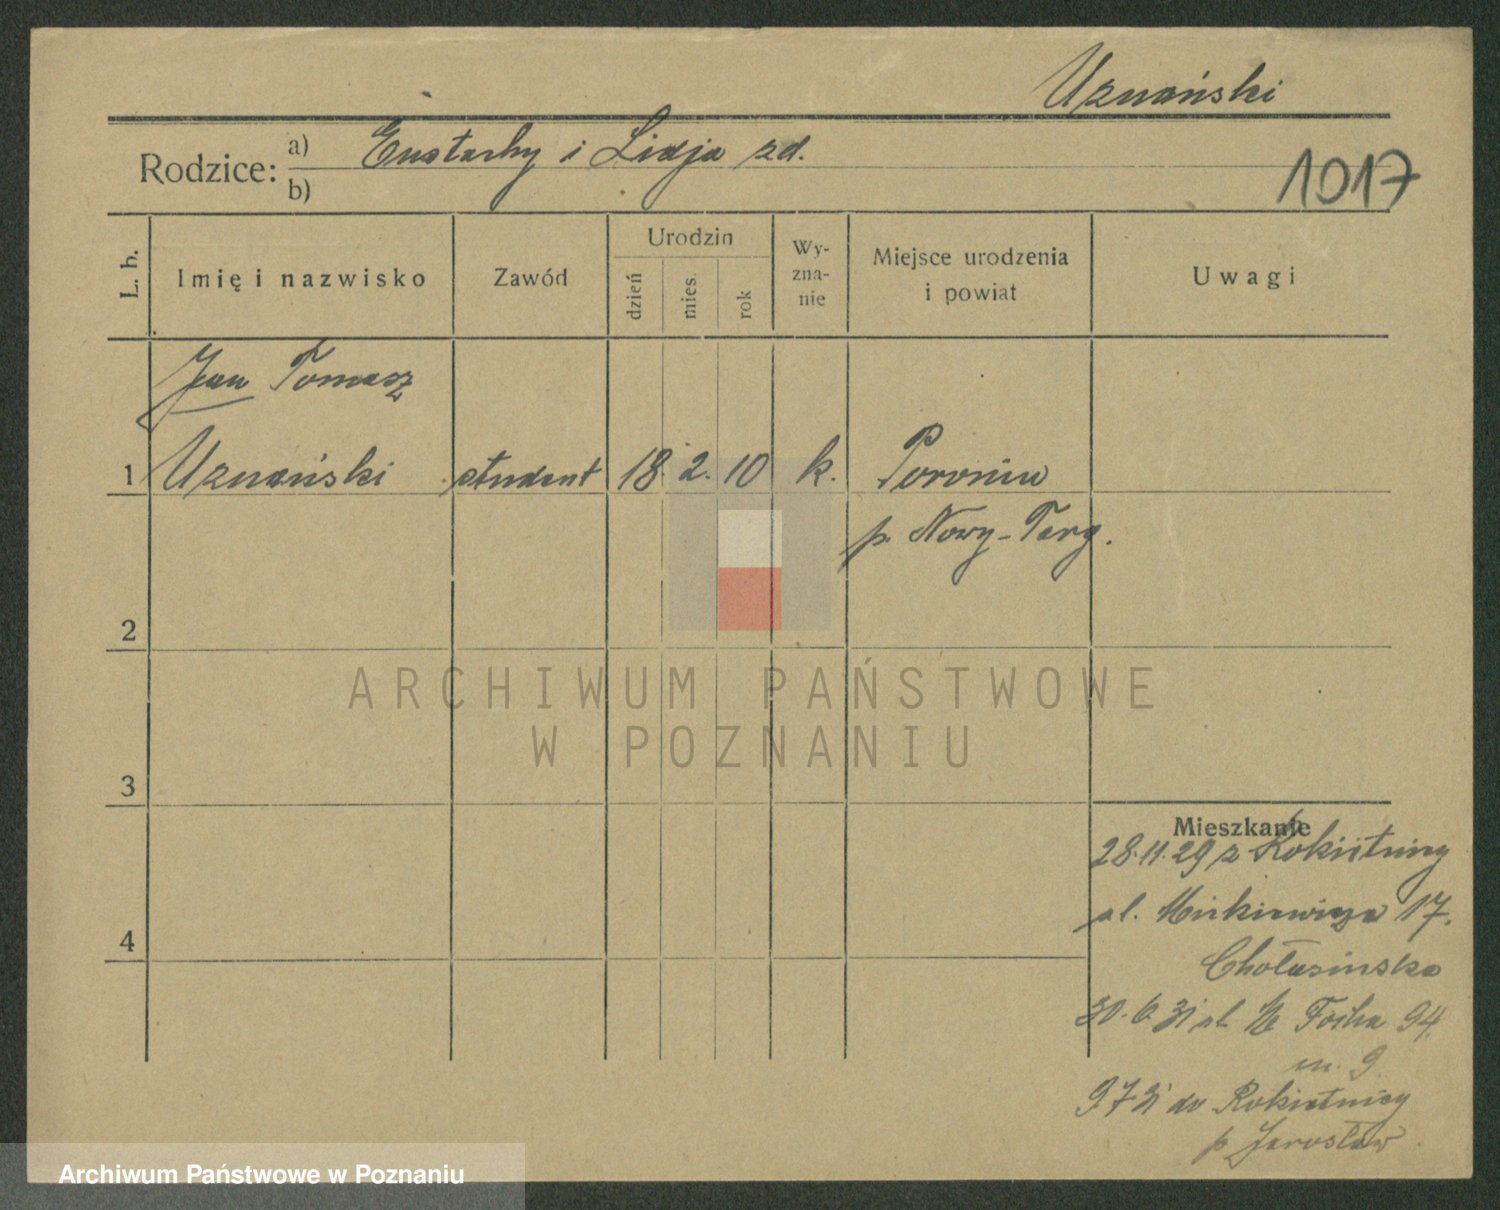 Uznański
Rodzice: a) Eustachy i Lidja zd.
b)
1017
L. b.
Imię i nazwisko
Zawód
Urodzin
dzień
mies.
rok
Wy-
zna-
nie
Miejsce urodzenia
i powiat
Uwagi
Jan Tomasz
1 Uznański student 18. 2. 10 k. Poronin
p. Nowy-Targ.
2
3
4
Mieszkanie
28.11.29 z Rokietnicy
ul. Mickiewicza 17.
30.6.31 ul. Focha 94.
m. 9
9 7 31 do Rokietnicy
p Jarosław
ARCHIWUM PAŃSTWOWE
W POZNANIU
Archiwum Państwowe w Poznaniu